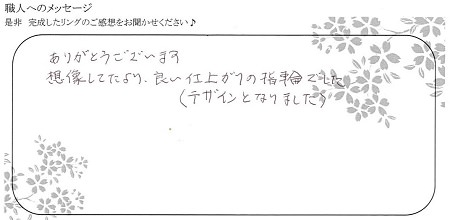 職人へのメッセージ
是非 完成したリングのご感想をお聞かせください♪
ありがとうございます
想像してたより、良い仕上がりの指輪でした
(デザインとなりました)